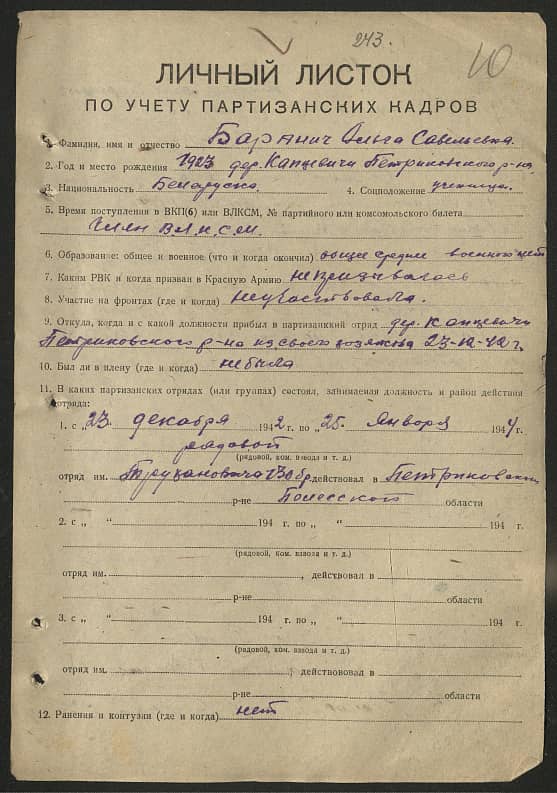 243.
10
ЛИЧНЫЙ ЛИСТОК
ПО УЧЕТУ ПАРТИЗАНСКИХ КАДРОВ
1. Фамилия, имя и отчество Баранич Ольга Савельевна.
2. Год и место рождения 1923 дер. Капцевичи Петриковского р-на
3. Национальность Беларуска. 4. Соцположение ученица.
5. Время поступления в ВКП(б) или ВЛКСМ, № партийного или комсомольского билета
Член ВЛКСМ
6. Образование: общее и военное (что и когда окончил) общее средне военного нет
7. Каким РВК и когда призван в Красную Армию непризывалась
8. Участие на фронтах (где и когда) неучаствовала.
9. Откуда, когда и с какой должности прибыл в партизанский отряд дер. Капцевичи
Петриковского р-на из своего хозяйства 23-12-42 г.
10. Был ли в плену (где и когда) небыла
11. В каких партизанских отрядах (или группах) состоял, занимаемая должность и район действия
отряда:
1. с „23. декабря 1942 г. по „25. Января 1944 г.
рядовой
(рядовой, ком. взвода и т. д.)
отряд им. 130 бр. действовал в Петриковском
р-не Полесской области
2. с „ “ 194 г. по „ “ 194 г.
(рядовой, ком. взвода и т. д.)
отряд им. , действовал в
р-не области
3. с „ “ 194 г. по „ “ 194 г.
(рядовой, ком. взвода и т. д.)
отряд им. , действовал в
р-не области
12. Ранения и контузии (где и когда) нет